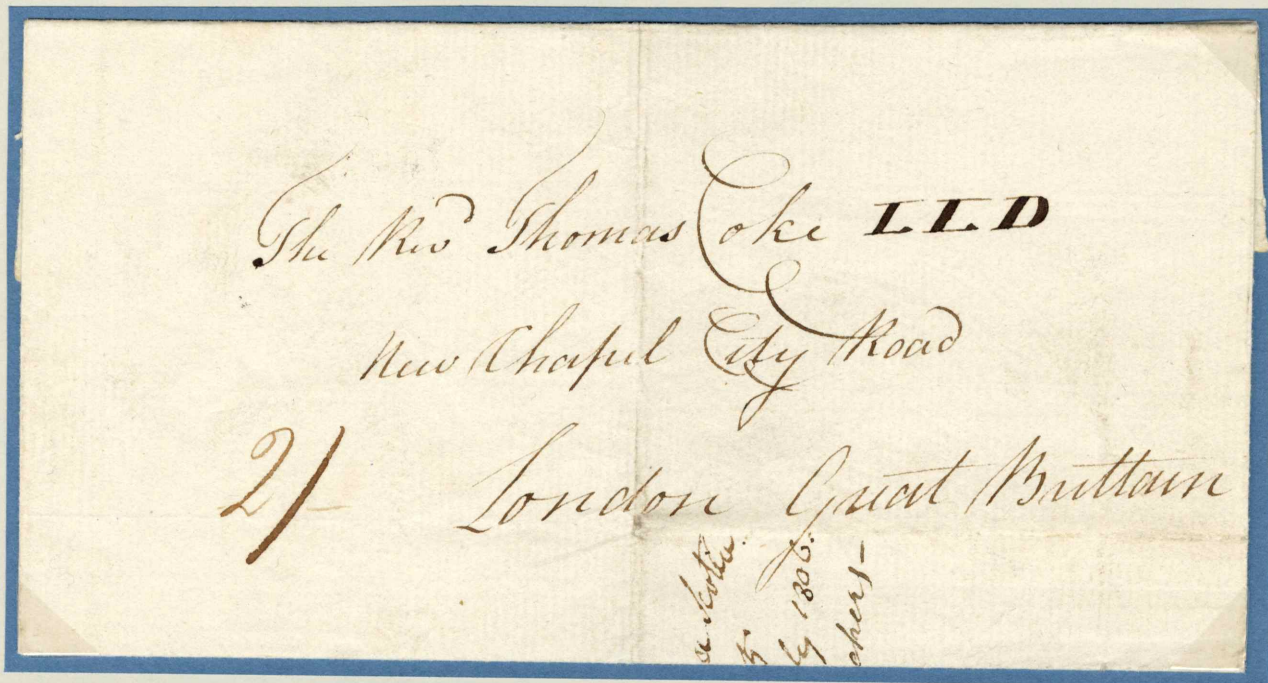 The Revd Thomas Coke LLD
New Chapel City Road
2/- London Great Brittain
a Scotia
ly 1806.